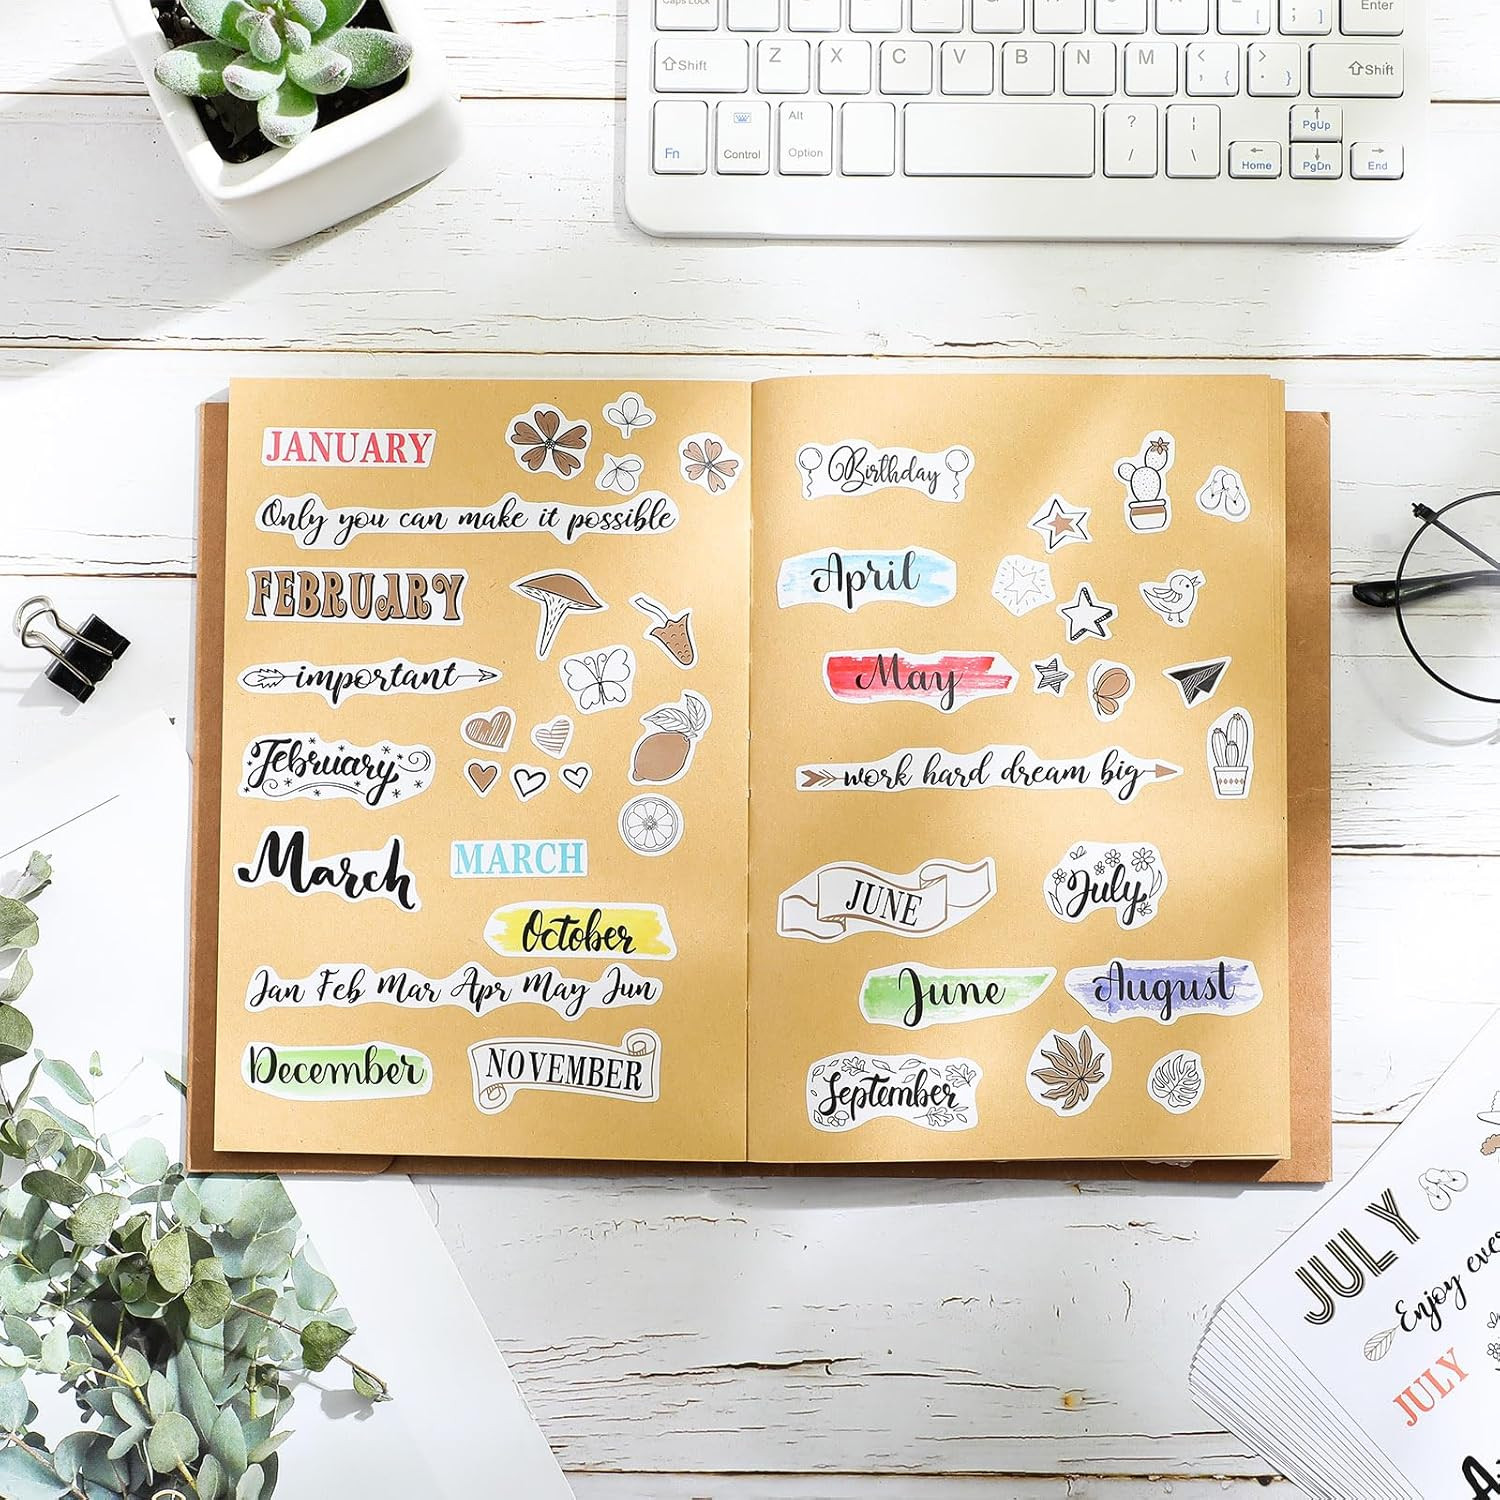 Caps Lock
Enter
Shift
Z
X
C
V
B
N
M
Shift
Fn
Control
Alt
Option
?
/
PgUp
Home
PgDn
End
JANUARY
Only you can make it possible
FEBRUARY
important
February
March
MARCH
October
Jan Feb Mar Apr May Jun
December
NOVEMBER
Birthday
April
May
work hard dream big
JUNE
July
June
August
September
JULY
Enjoy
JULY